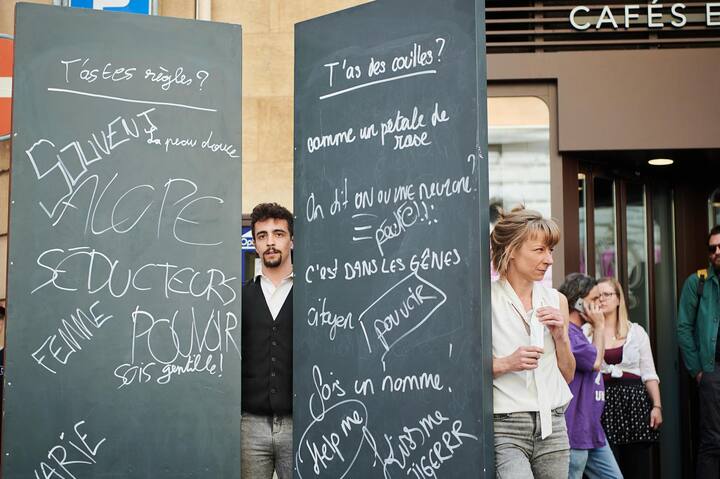 CAFÉS E
T'astes règles?
SOUVENT
La peau douce
SALOPE
SÉDUCTEURS
FEMME
POUVOIR
sois gentille!
MARIE
T'as des couilles?
comme un pétale de
rose
On dit ON ou une neurone?
=
C'EST DANS LES GÊNES
citoyen
pouvoir
Sois un nomme!
Help me
Kiss me